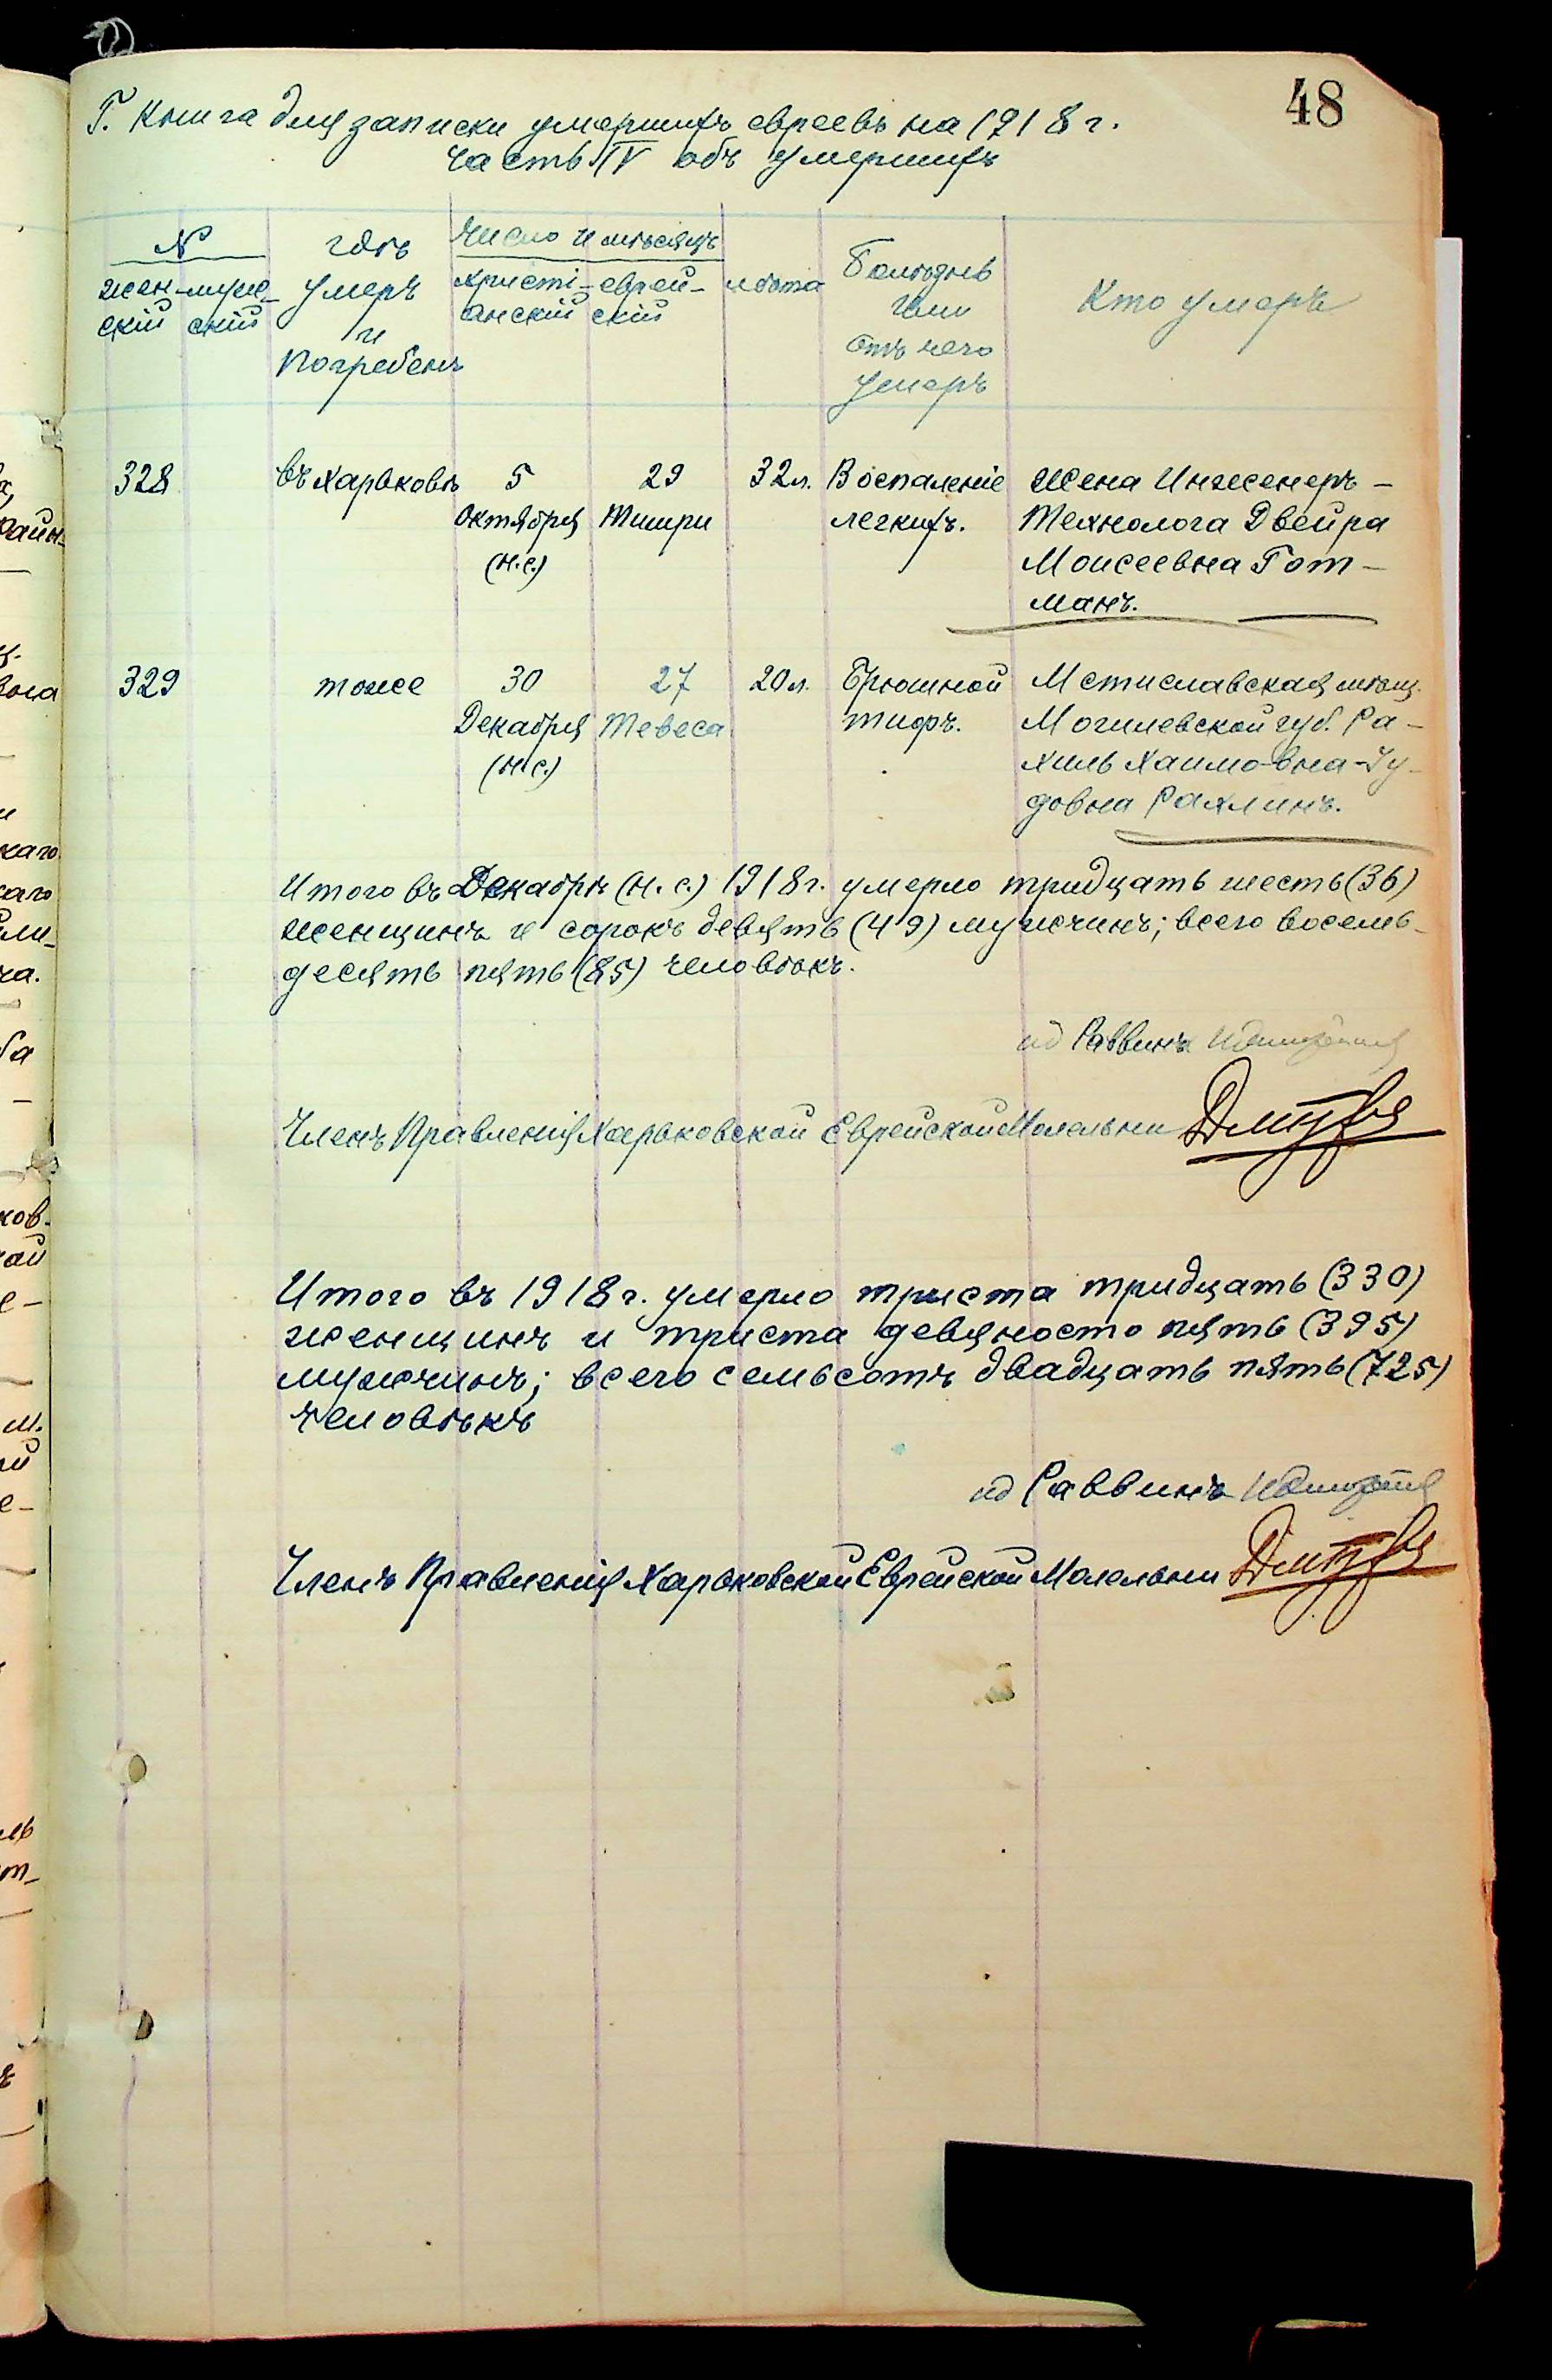 48
Г. Книга для записки умершихъ евреевъ на 1918 г.
часть IV объ умершихъ
№
жен- муже-
скій скій
гдѣ
умеръ
и
погребенъ
Число и мѣсяцъ
христі- еврей-
анскій скій
лѣта
Болѣзнь
или
отъ чего
умеръ
Кто умеръ
328 въ Харьковѣ 5 29 32 л. Воспаленіе Жена Инженеръ-
Октября Тишри легкихъ. Технолога Двейра
(н.с.) Моисеевна Гот-
манъ.
329 тоже 30 27 20 л. Брюшной Мстиславская мѣщ.
Декабря Тевеса тифъ. Могилевской губ. Ра-
(н.с.) хиль Хаимовна-Іу-
довна Рахлинъ.
Итого въ Декабрѣ (н. с.) 1918 г. умерло тридцать шесть (36)
женщинъ и сорокъ девять (49) мужчинъ; всего восемь-
десять пять (85) человѣкъ.
ид Раввинъ
Членъ Правленія Харьковской Еврейской Молельни
Итого въ 1918 г. умерло триста тридцать (330)
женщинъ и триста девяносто пять (395)
мужчинъ; всего семьсотъ двадцать пять (725)
человѣкъ
ид Раввинъ
Членъ Правленія Харьковской Еврейской Молельни